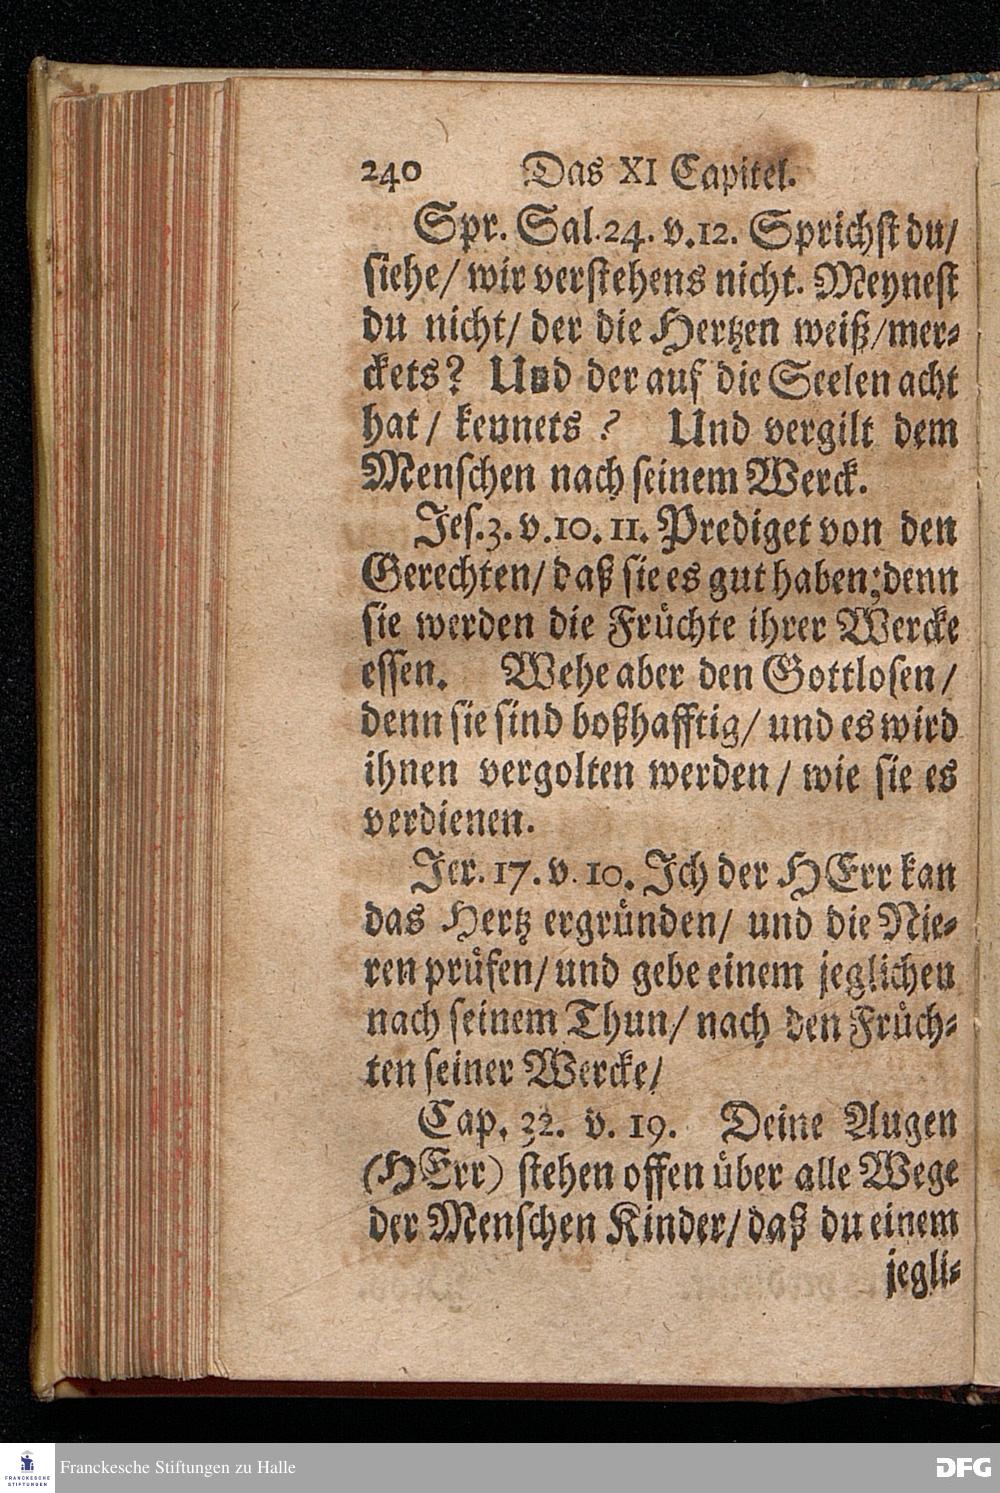 240 Das XI Capitel.
Spr. Sal. 24. v. 12. Sprichst du/
siehe/ wir verstehens nicht. Meynest
du nicht/ der die Hertzen weiß/ mer-
ckets? Und der auf die Seelen acht
hat/ kennets? Und vergilt dem
Menschen nach seinem Werck.
Jes. 3. v. 10. 11. Prediget von den
Gerechten/ daß sie es gut haben; denn
sie werden die Früchte ihrer Wercke
essen. Wehe aber den Gottlosen/
denn sie sind boßhafftig/ und es wird
ihnen vergolten werden/ wie sie es
verdienen.
Jer. 17. v. 10. Ich der HErr kan
das Hertz ergründen/ und die Nie-
ren prüfen/ und gebe einem jeglichen
nach seinem Thun/ nach den Früch-
ten seiner Wercke/
Cap. 32. v. 19. Deine Augen
(HErr) stehen offen über alle Wege
der Menschen Kinder/ daß du einem
jegli-
FRANCKESCHE
STIFTUNGEN
Franckesche Stiftungen zu Halle
DFG